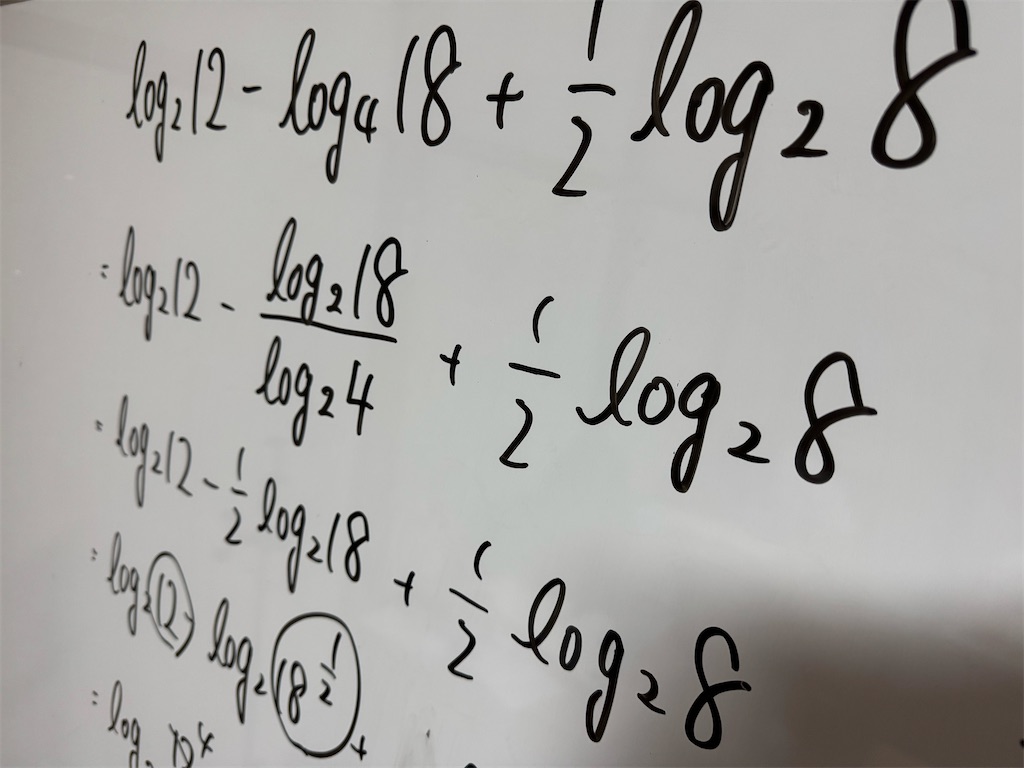 log₂12 - log₄18 + 1/2 log₂ 8
= log₂12 - log₂18/log₂4 + 1/2 log₂ 8
= log₂12 - 1/2 log₂18 + 1/2 log₂ 8
= log₂12 - log₂18^(1/2) +
= log₂